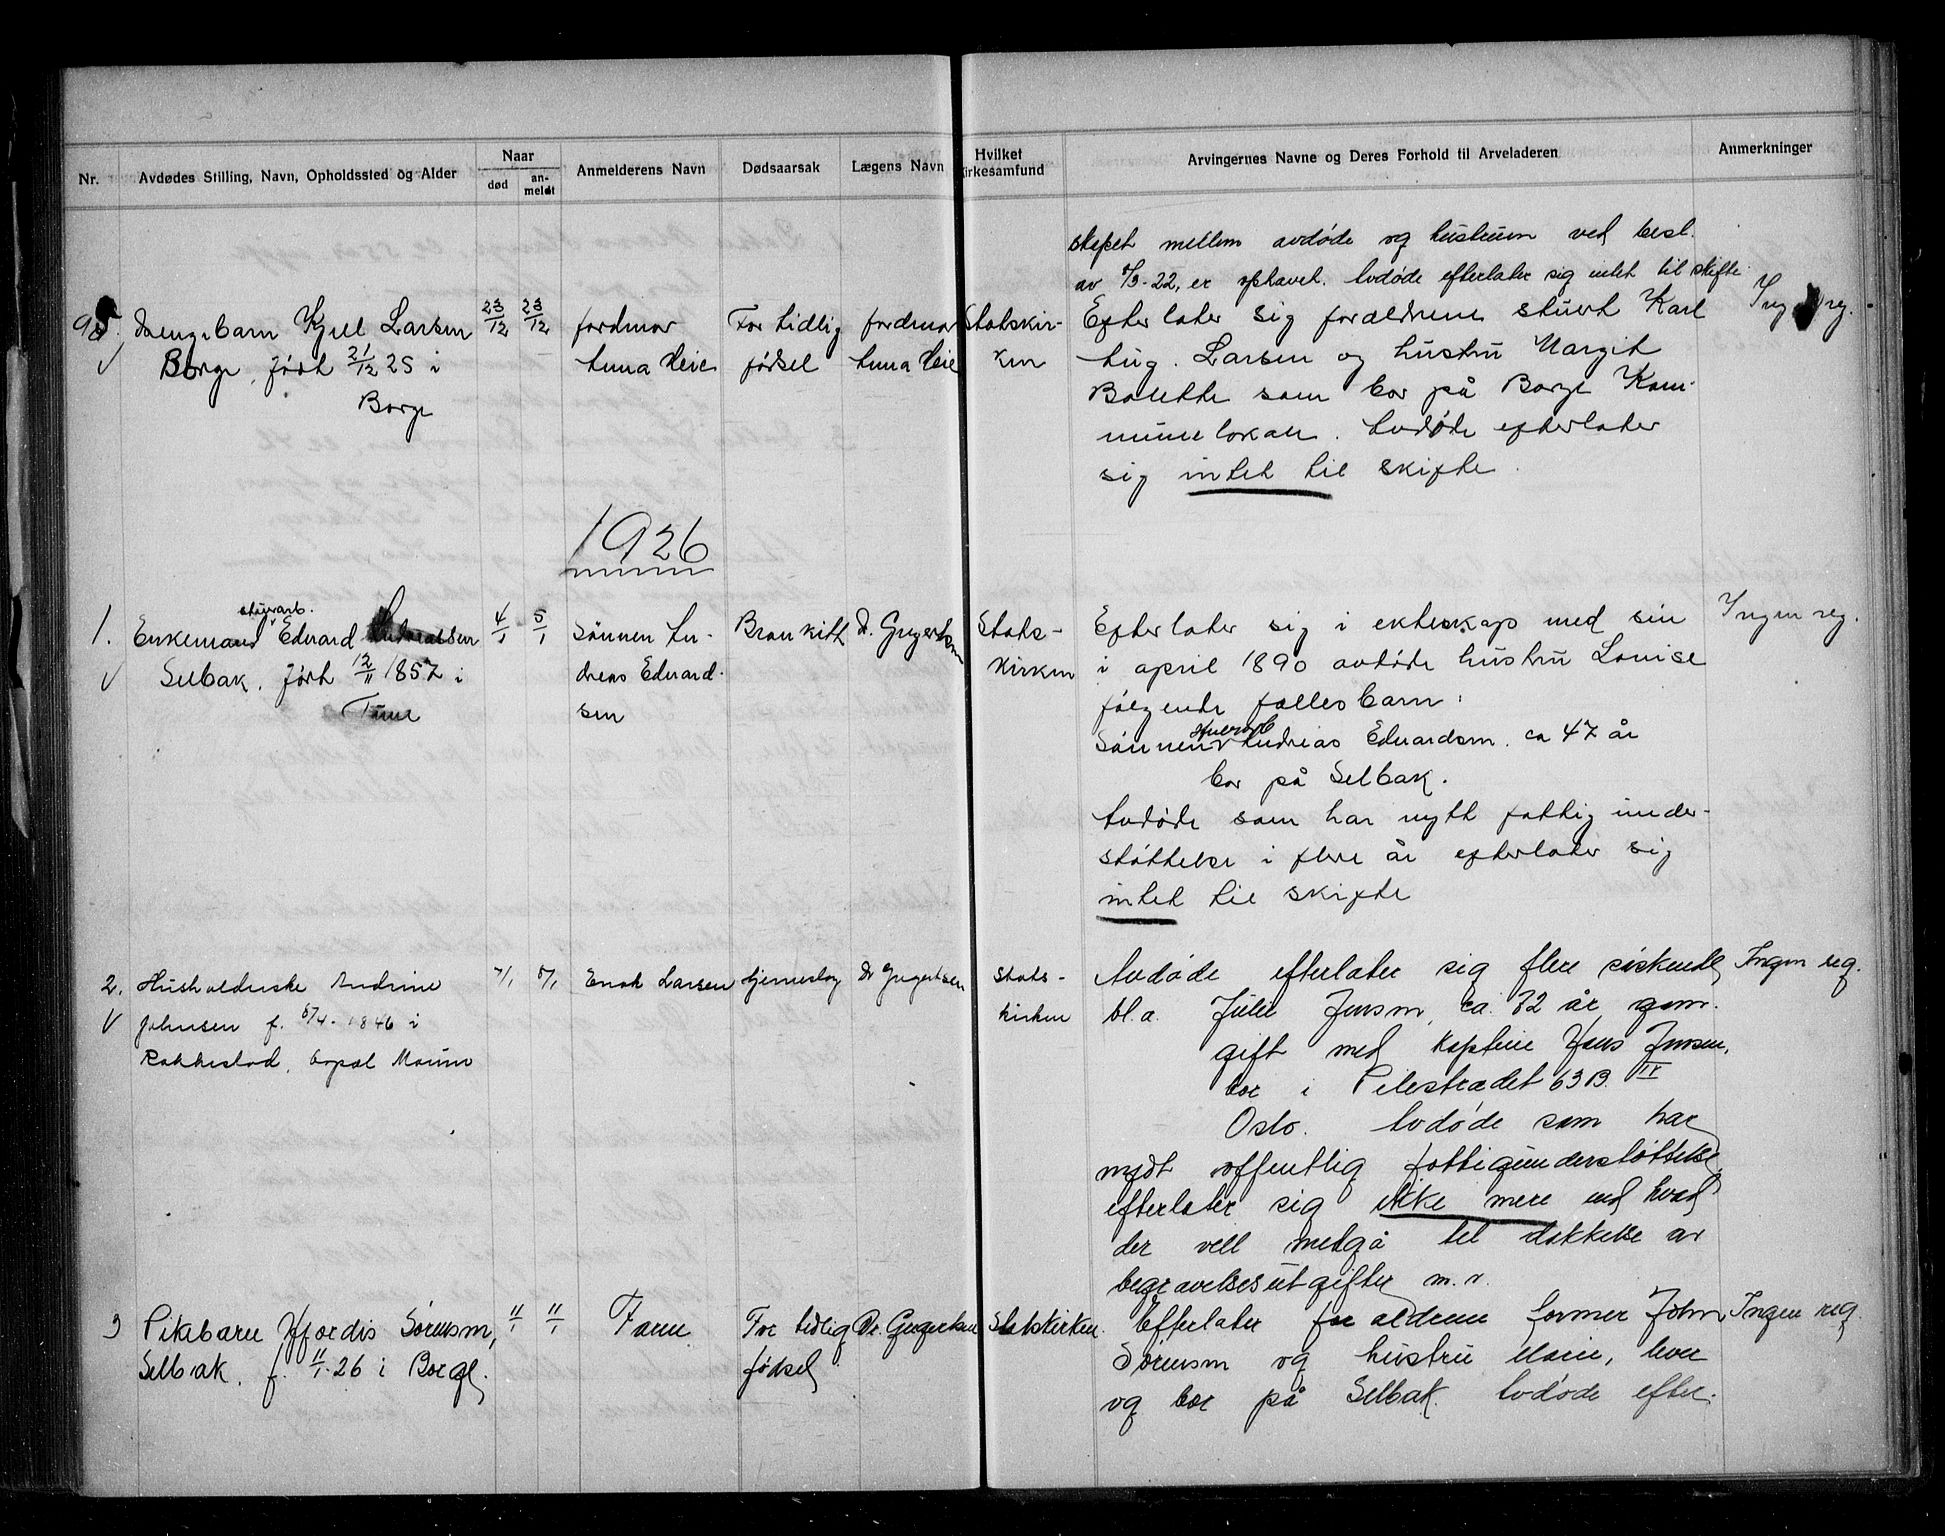 Nr.
Avdødes Stilling, Navn, Opholdssted og Alder
Naar
død
an-
meldt
Anmelderens Navn
Dødsaarsak
Lægens Navn
Hvilket
irkesamfund
Arvingernes Navne og Deres Forhold til Arveladeren
Anmerkninger
skapet mellem avdøde og hustruen ved besl.
av -22, er ophævet. Avdøde efterlater sig intet til skifte
Drengebarn Kjell Larsen
Borge, født 21/12 25 i
Borge
23/12
23/12
Jordmor
Anna Heie
For tidlig
fødsel
Jordmor
Anna Heie
Statskir-
ken
Efterlater sig forældrene stuert Karl
Aug. Larsen og hustru Margit
Bolette som bor på Borge Kom-
munelokale. Avdøde efterlater
sig intet til skifte.
Ing reg.
1926
1.
Enkemand stuerarb. Edvard
Selbak, født 12/11 1857 i
Tune
4/1
5/1
Sønnen An-
dreas Edvard-
sen
Brankitt
Dr. Gregertsen
Stats-
kirken
Efterlater sig i ekteskap med sin
i april 1890 avdøde hustru Louise
følgende fællesbarn:
Sønnen stuerarb Andreas Edvardsen, ca 47 år
bor på Selbak.
Avdøde som har nytt fattigunder-
støttelse i flere år efterlater sig
intet til skifte
Ingen reg.
2.
Husholderske Andrine
Johnsen f. 8/4-1846 i
Rakkestad, bopæl Moum
7/1
8/1
Enok Larsen
Hjerneslag
Dr Gregertsen
Stats-
kirken
Avdøde efterlater sig flere søskende
bl.a. Julie Jensen, ca. 72 år gam.
gift med kaptein Hans Jensen,
bor i Pilestrædet 63 B. II
Oslo. Avdøde som har
nydt offentlig fattigunderstøttelse
efterlater sig ikke mere end hvad
der vell medgå til dækkelse av
begravelsesutgifter m.v.
Ingen reg.
3
Pikebarn Hjørdis Sørensen,
Selbak, f. 11/1-26 i Borge.
11/1
11/1
Faren
For tidlig
fødsel
Dr. Gregertsen
Statskirken.
Efterlater forældrene former John
Sørensen og hustru Marie, lever
og bor på Selbak. Avdøde efter-
Ingen reg.